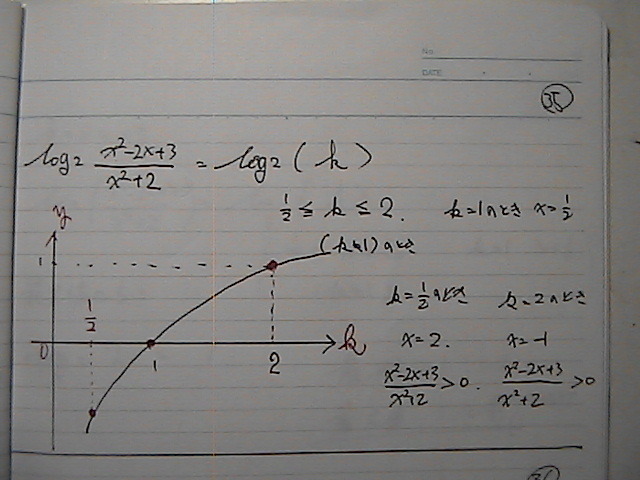 No.
DATE
35
log₂ (x²-2x+3)/(x²+2) = log₂ (k)
1/2 ≤ k ≤ 2. k=1のとき x=1/2
y
1 (k≠1)のとき
1/2 k=1/2のとき k=2のとき
0 1 2 k x=2. x=-1
(x²-2x+3)/(x²+2) >0. (x²-2x+3)/(x²+2) >0